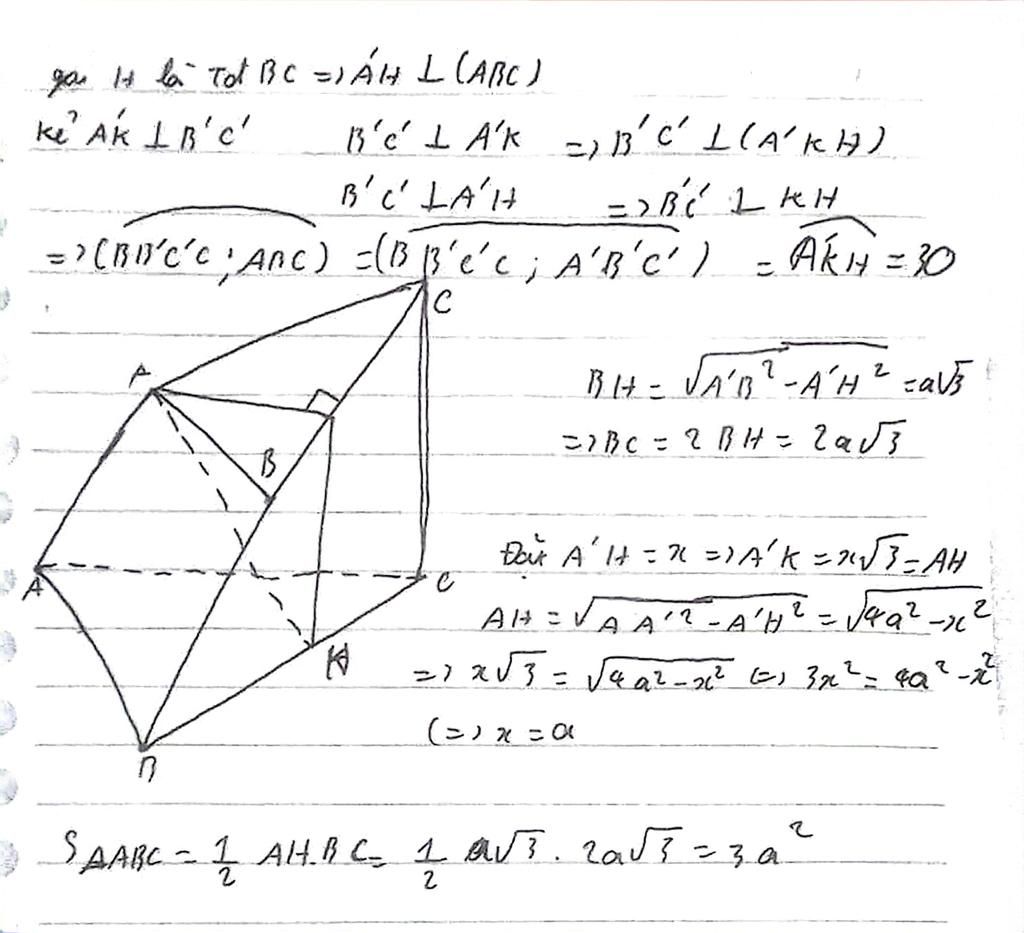 gọi H là Tđ BC => A'H ⊥ (ABC)
kẻ A'K ⊥ B'C' B'C' ⊥ A'K => B'C' ⊥ (A'KH)
B'C' ⊥ A'H => B'C' ⊥ KH
=> (BB'C'C; ABC) = (BB'C'C; A'B'C') = A'KH = 30
C
A
BH = √A'B² - A'H² = a√3
=> BC = 2BH = 2a√3
B
Đặt A'H = x => A'K = x√3 = AH
A C
AH = √AA'² - A'H² = √4a² - x²
H => x√3 = √4a² - x² (=) 3x² = 4a² - x²
(=) x = a
B
S ΔABC = 1/2 AH.BC = 1/2 a√3 . 2a√3 = 3a²